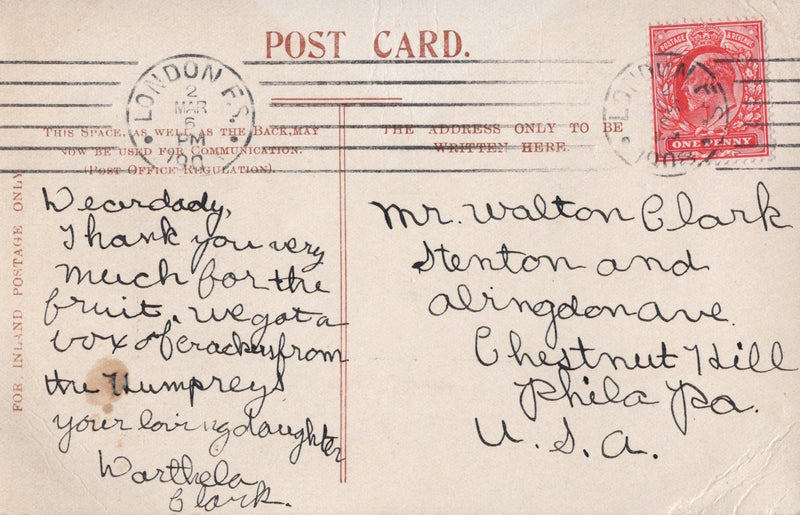 POST CARD.
LONDON F.S.
2
MAR
6
PM
190
THIS SPACE, AS WELL AS THE BACK, MAY
NOW BE USED FOR COMMUNICATION.
(POST OFFICE REGULATION).
THE ADDRESS ONLY TO BE
WRITTEN HERE.
POSTAGE & REVENUE
ONE PENNY
LONDON F.S.
FOR INLAND POSTAGE ONLY
Deardady,
Thank you very
much for the
fruit. We got a
box of crackers from
the Humpreys
your loving daughter
Warthela
Clark.
Mr. Walton Clark
Stenton and
abingdon ave.
Chestnut Hill
Phila Pa.
U. S. A.